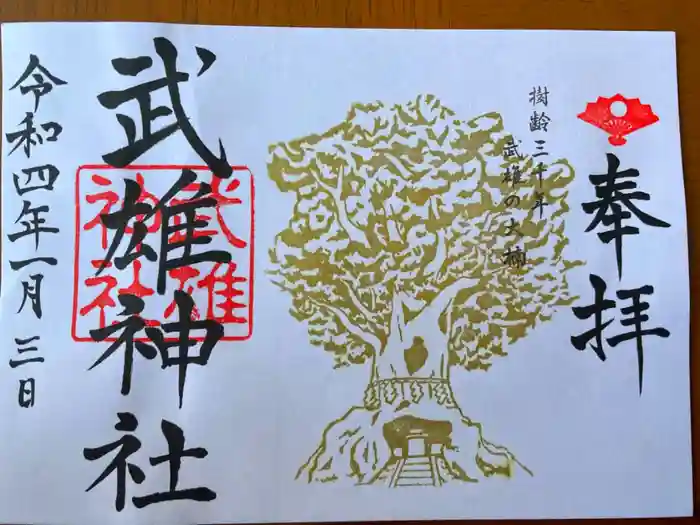 奉拝
樹齢三千年
武雄の大楠
武雄神社
武雄
神社
令和四年一月三日